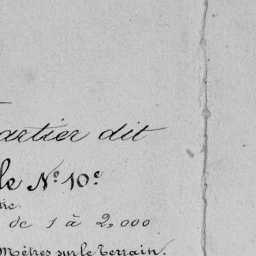 artier dit
le N.º 10.e
de 1 à 2,000
Mètres sur le Terrain.